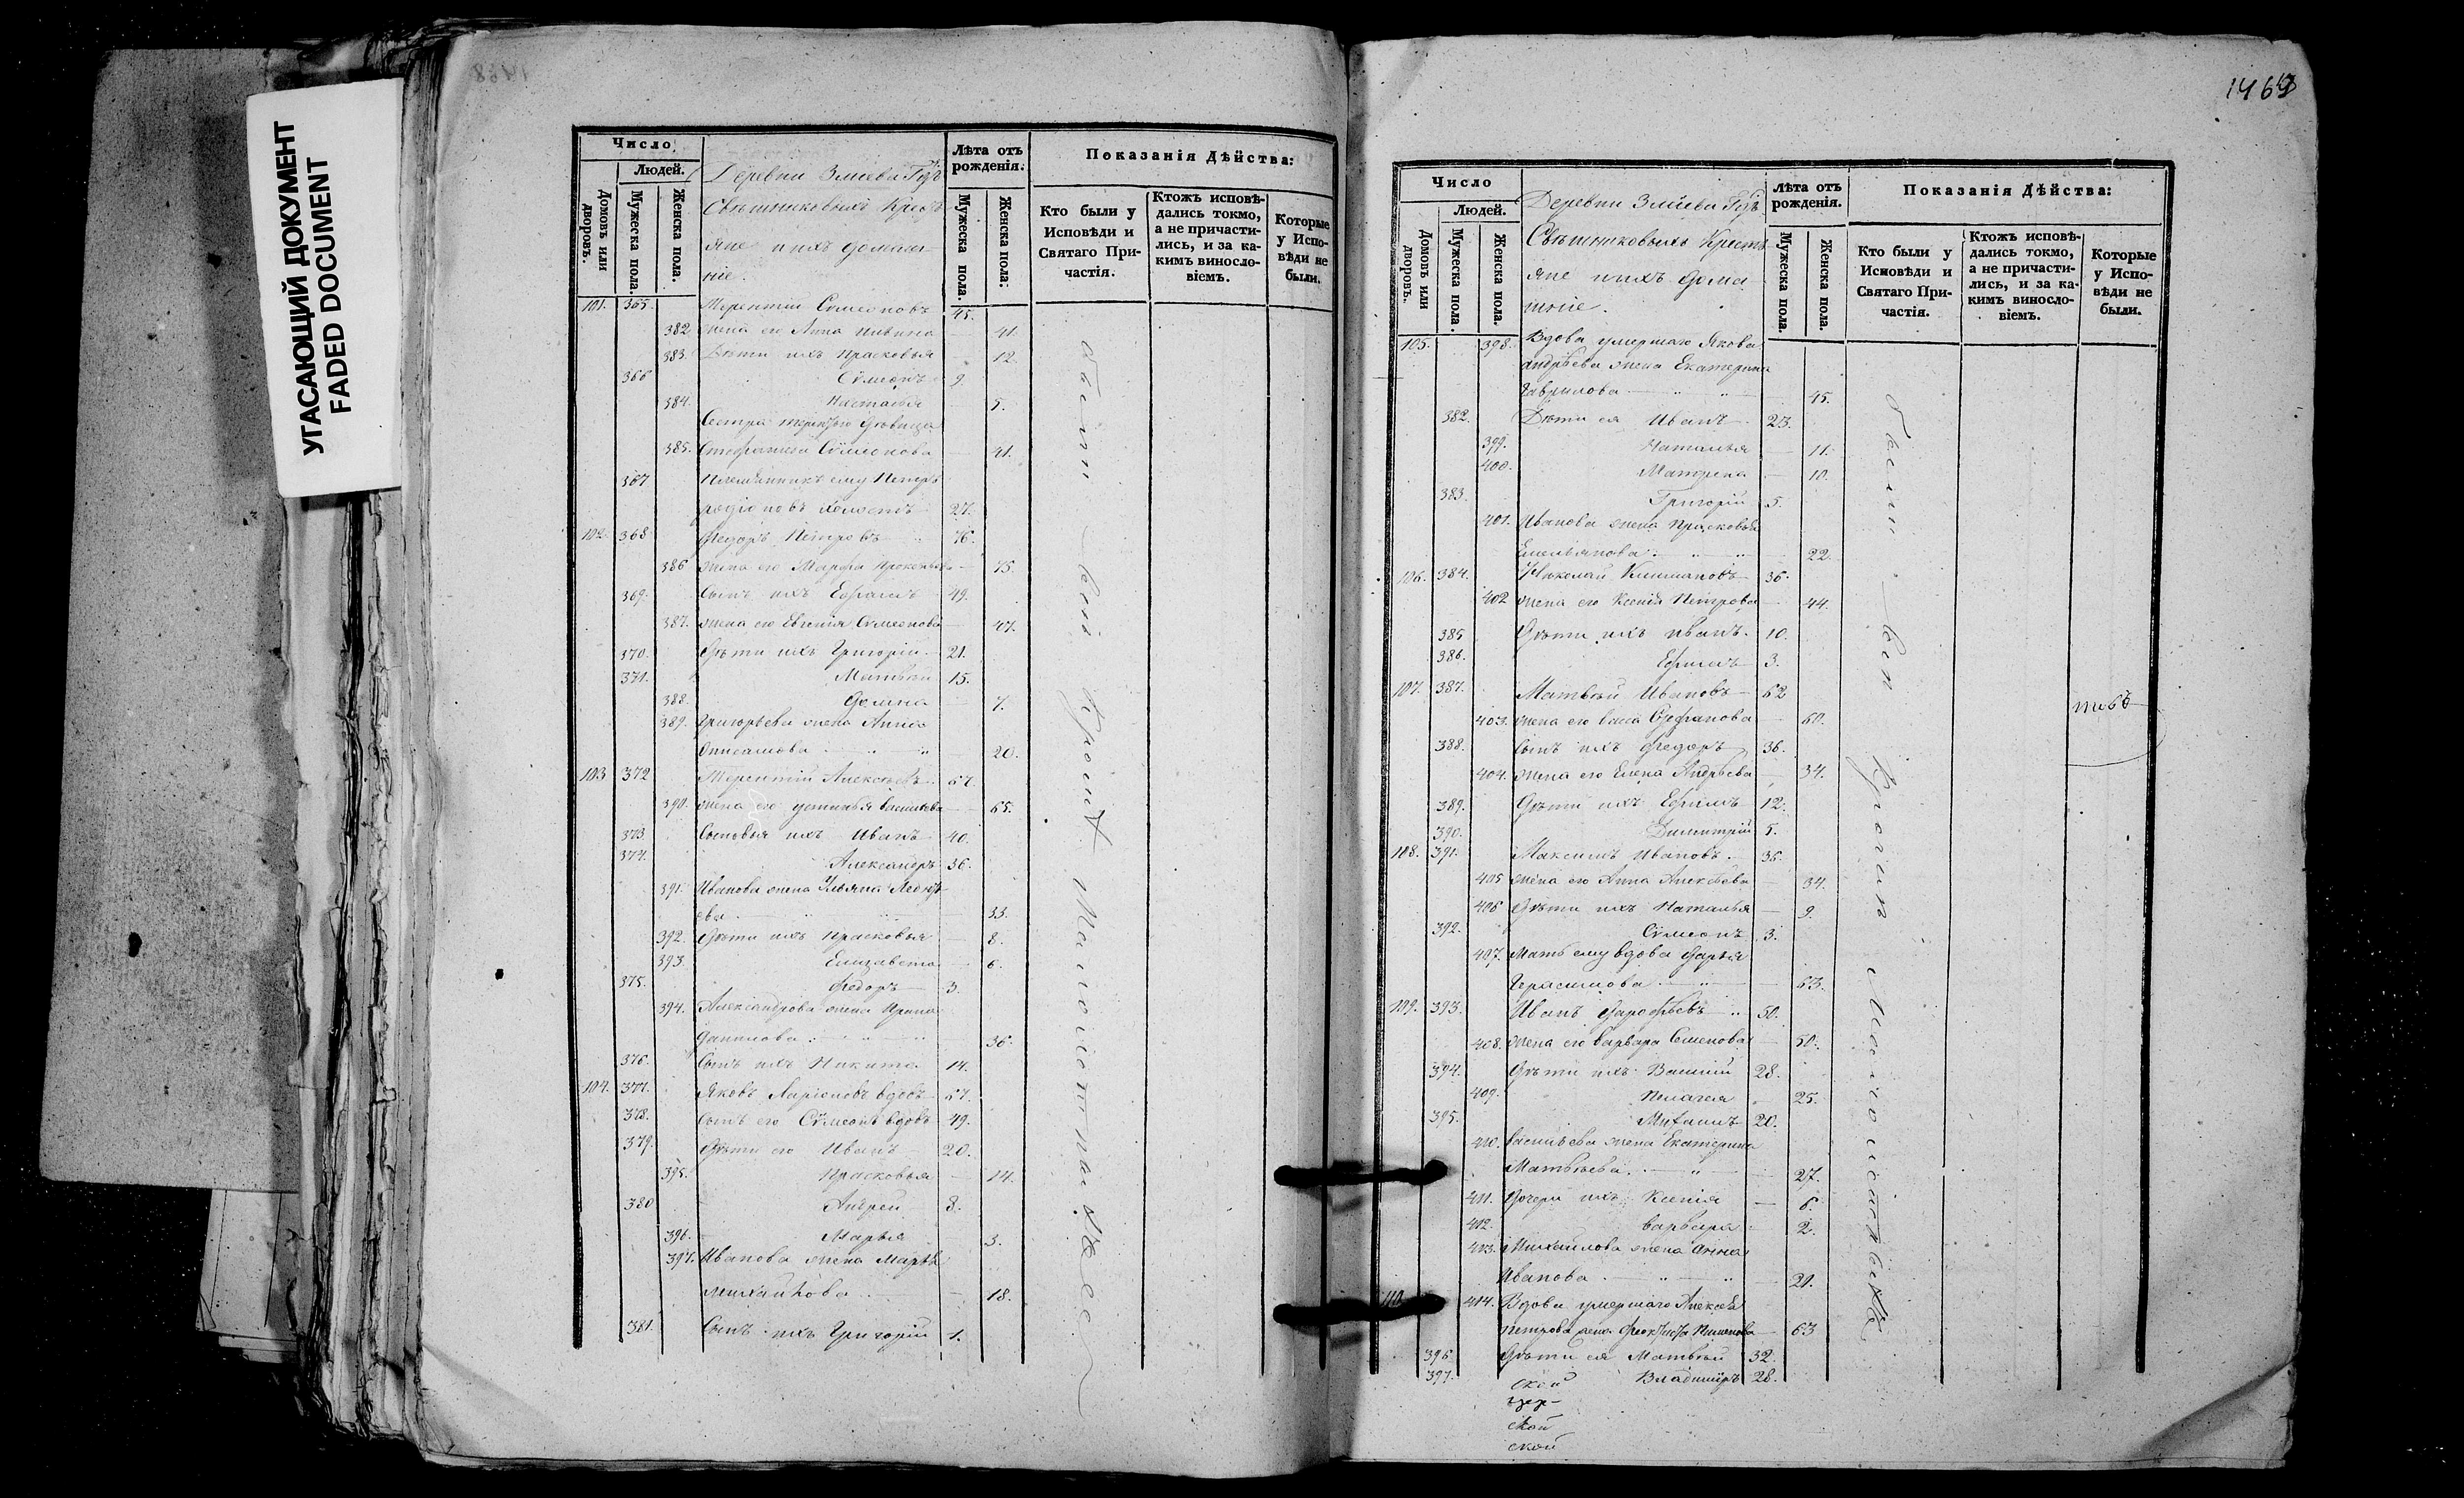 УГАСАЮЩИЙ ДОКУМЕНТ
FADED DOCUMENT
Число
Людей.
Домовъ или дворовъ.
Мужеска пола.
Женска пола.
Деревни Змѣева Гдъ
Крес
яне ихъ домаш
ніе.
Лѣта отъ рожденія.
Мужеска пола.
Женска пола.
Показанія Дѣйства:
Кто были у Исповѣди и Святаго Причастія.
Ктожъ исповѣдались токмо, а не причастились, и за какимъ винословіемъ.
Которые у Исповѣди не были.
101. 365. Терентій Сѵмеоновъ 45.
382. жена его Анна 41.
383. Дѣти ихъ Прасковья 12.
366 Сѵмеонъ 9.
384. Наталья 5.
Сестра дѣвица
385. Стефанида Сѵмеонова 41.
367 Племянникъ ему Петръ
Родіоновъ холостъ 27.
102. 368 Федоръ Петровъ 76.
386 жена его Марфа 75.
369. Сынъ ихъ Ефимъ 49.
387. жена его Евгенія Сѵмеонова 47.
370. Дѣти ихъ Григорій 21.
371. Матвѣй 15.
388. Домна 7.
389. Григорьева жена Анна
20.
103 372 Терентій Алексѣевъ 67.
390. жена его Устинья Васильева 65.
373 Сыновья ихъ Иванъ 40.
374. Александръ 36.
391. Иванова жена Ульяна
ева 33.
392. Дѣти ихъ Прасковья 8.
393. Елизавета 6.
375. Федоръ 3.
394. Александрова жена Ирина
Данилова 36.
376. Сынъ ихъ Никита 14.
104. 377. Яковъ Ларіоновъ вдовъ 67.
378. Сынъ его Сѵмеонъ вдовъ 49.
379. Дѣти его Иванъ 20.
395. Прасковья 14.
380 Андрей 8.
396. Марья 3.
397. Иванова жена Марѳа
Михайлова 18.
381. Сынъ ихъ Григорій 1.
были всѣ кромѣ малолетныхъ
1469
Число
Людей.
Домовъ или дворовъ.
Мужеска пола
Женска пола.
Деревни Змѣева Гдъ
Крестъ
яне ихъ дома
шніе.
Лѣта отъ рожденія.
Мужеска пола.
Женска пола.
Показанія Дѣйства:
Кто были у Исповѣди и Святаго Причастія.
Ктожъ исповѣдались токмо, а не причастились, и за какимъ винословіемъ.
Которые у Исповѣди не были.
105. 398. Вдова умершаго Якова
Андрѣева жена Екатерина
Гаврилова 45.
382. Дѣти ея Иванъ 23.
399. Наталья 11.
400. Матрена 10.
383. Григорій 5.
401. Иванова жена Прасковья
Емельянова 22.
106. 384. Николай 36.
402 жена его Ксенія Петрова 44.
385 Дѣти ихъ Иванъ. 10.
386. Ефимъ 3.
107. 387. Матвѣй Ивановъ 62
403. жена его 60.
388. Сынъ ихъ Федоръ 36.
404. жена его Елена Андрѣева 34.
389. Дѣти ихъ Ефимъ 12.
390. Димитрій 5.
108. 391. Максимъ Ивановъ. 36.
405 жена его Анна Алексѣева 34.
406 Дѣти ихъ Наталья 9.
392. Сѵмеонъ 3.
407. Мать ему вдова Дарья
Герасимова 63.
109. 393. Иванъ Дарофѣевъ 50.
408. жена его Варвара Семенова 50.
394. Дѣти ихъ Василій 28.
409. Пелагея 25.
395. Михаилъ 20.
410. Васильева жена Екатерина
Матвѣева 27.
411. Дочери ихъ Ксенія 6.
412. Варвара 2.
413. Михайлова жена Анна
Иванова 21.
110 414. Вдова умершаго Алексѣя
Петрова жена Феоктиста Пименова 63
396 Дѣти ея Матвѣй 32.
397. Владиміръ 28.
были всѣ кромѣ малолетныхъ
ской
ской
ской